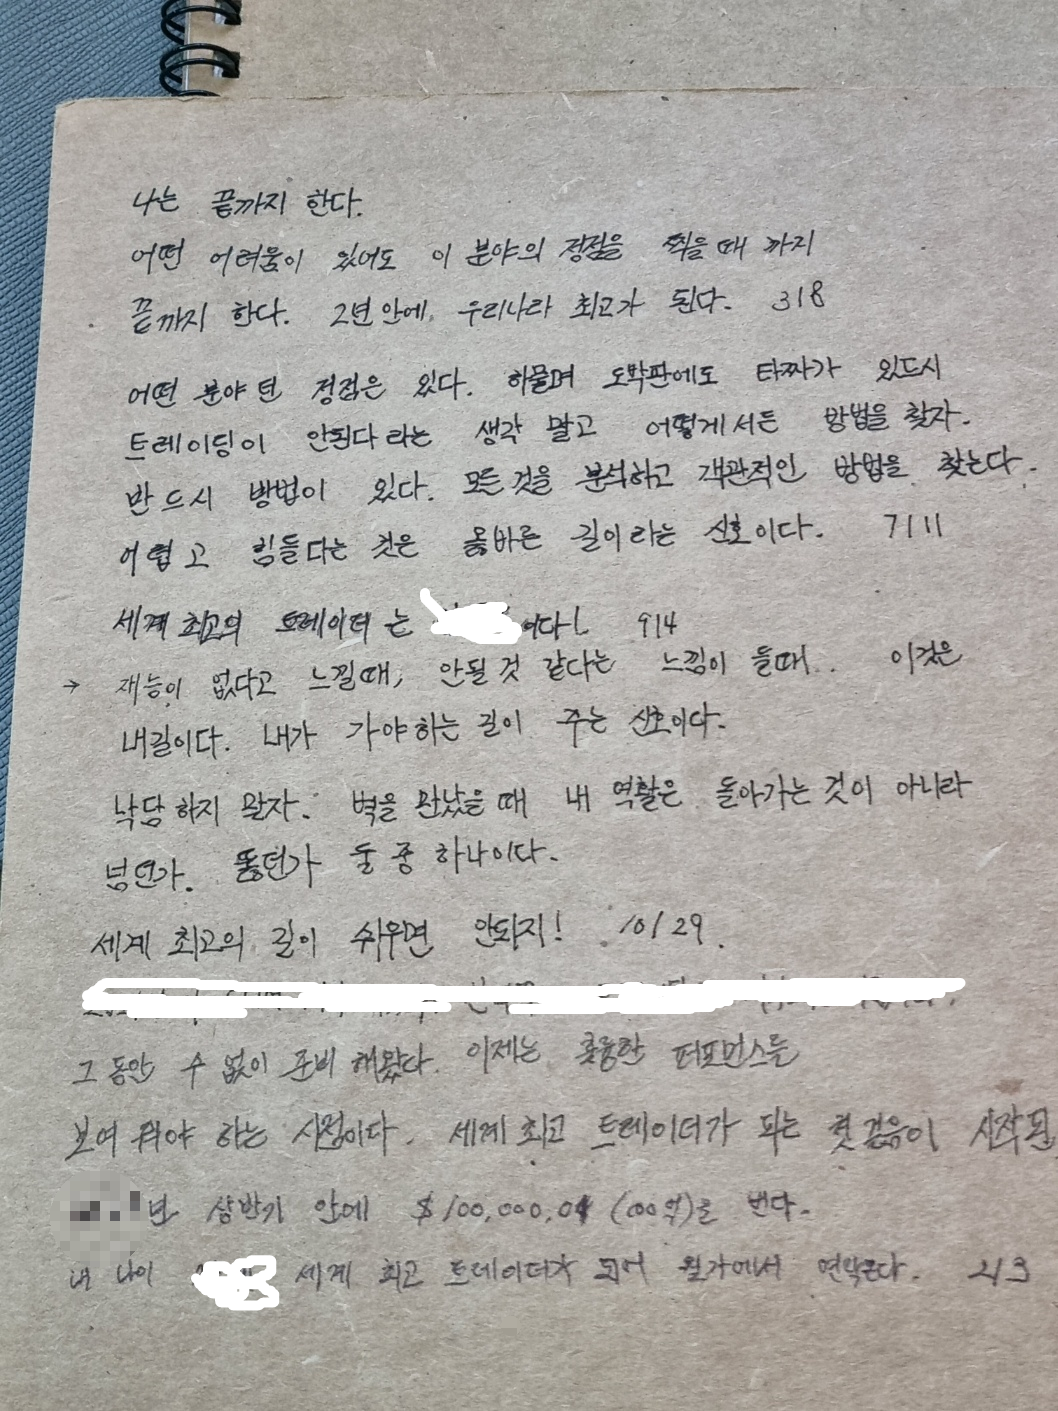 나는 끝까지 한다.
어떤 어려움이 있어도 이 분야의 정점을 찍을 때 까지
끝까지 한다. 2년 안에, 우리나라 최고가 된다. 318
어떤 분야 던 정점은 있다. 하물며 도박판에도 타짜가 있드시
트레이딩이 안된다 라는 생각 말고 어떻게서든 방법을 찾자.
반드시 방법이 있다. 모든 것을 분석하고 객관적인 방법을 찾는다.
어렵고 힘들다는 것은 옳바른 길이라는 신호이다. 7111
세계 최고의 트레이더 는 이다!. 914
→ 재능이 없다고 느낄때, 안될 것 같다는 느낌이 들때.. 이것은
내길이다. 내가 가야하는 길이 주는 신호이다.
낙담 하지 말자. 벽을 만났을 때 내 역활은 돌아가는 것이 아니라
넘던가. 뚫던가 둘 중 하나이다.
세계 최고의 길이 쉬우면 안되지! 10/29.
그 동안 수 없이 준비 해왔다. 이제는 훌륭한 퍼포먼스를
보여 줘야 하는 시점이다. 세계 최고 트레이더가 되는 첫 걸음이 시작된
년 상반기 안에 (100억)를 번다.
내 나이 세계 최고 트레이더가 되어 월가에서 연락온다. 213